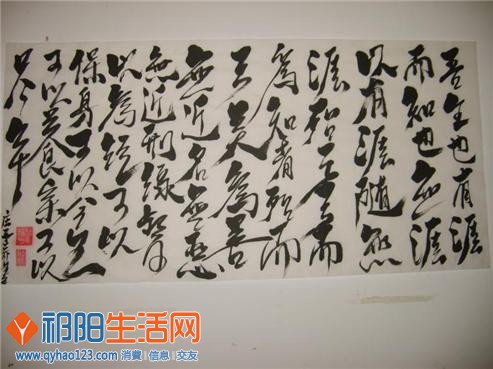 吾生也有涯
而知也無涯
以有涯隨無
涯殆已已而
為知者殆而
已矣為善
無近名為惡
無近刑緣督
以為經可以
保身可以全生
可以養親可以
尽年
祁阳生活网
www.qyhao123.com 消費 | 信息 | 交友